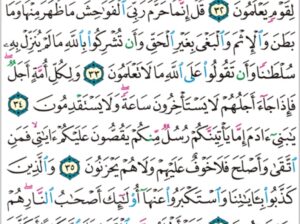 لِقَوْمٍ يَعْلَمُونَ ٣٢ قُلْ إِنَّمَا حَرَّمَ رَبِّيَ ٱلْفَوَٰحِشَ مَا ظَهَرَ مِنْهَا وَمَا
بَطَنَ وَٱلْإِثْمَ وَٱلْبَغْىَ بِغَيْرِ ٱلْحَقِّ وَأَن تُشْرِكُوا۟ بِٱللَّهِ مَا لَمْ يُنَزِّلْ بِهِۦ
سُلْطَٰنًا وَأَن تَقُولُوا۟ عَلَى ٱللَّهِ مَا لَا تَعْلَمُونَ ٣٣ وَلِكُلِّ أُمَّةٍ أَجَلٌ
فَإِذَا جَآءَ أَجَلُهُمْ لَا يَسْتَأْخِرُونَ سَاعَةً وَلَا يَسْتَقْدِمُونَ ٣٤
يَٰبَنِىٓ ءَادَمَ إِمَّا يَأْتِيَنَّكُمْ رُسُلٌ مِّنكُمْ يَقُصُّونَ عَلَيْكُمْ ءَايَٰتِى فَمَنِ
ٱتَّقَىٰ وَأَصْلَحَ فَلَا خَوْفٌ عَلَيْهِمْ وَلَا هُمْ يَحْزَنُونَ ٣٥ وَٱلَّذِينَ
كَذَّبُوا۟ بِـَٔايَٰتِنَا وَٱسْتَكْبَرُوا۟ عَنْهَآ أُو۟لَٰٓئِكَ أَصْحَٰبُ ٱلنَّارِ هُمْ